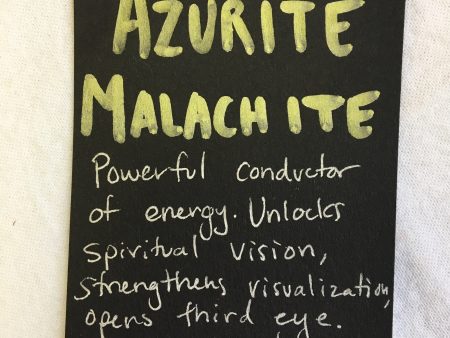 AZURITE
MALACHITE
Powerful conductor
of energy. Unlocks
spiritual vision,
strengthens visualization,
opens third eye.